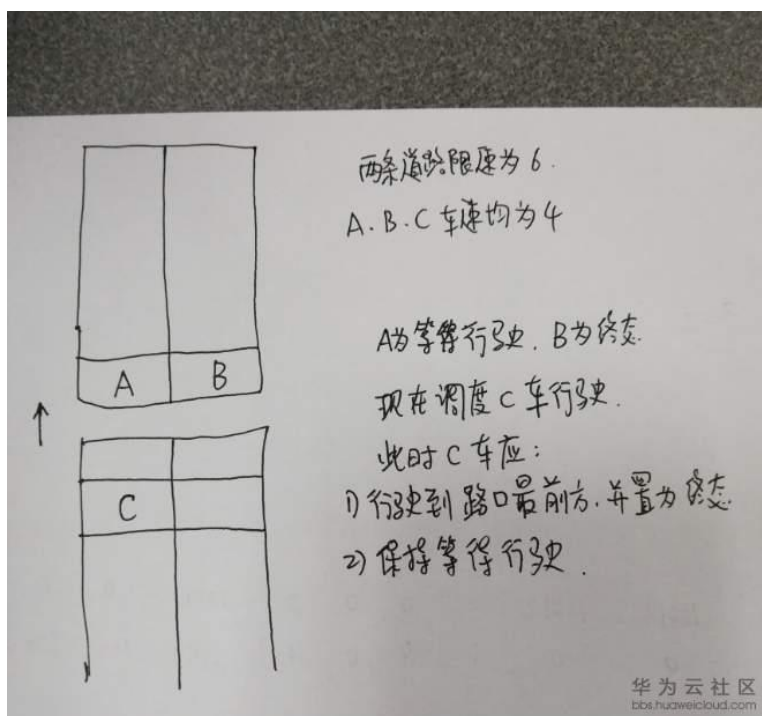 两条道路限速为6.
A.B.C车速均为4
A为等待行驶.B为终态
现在调度C车行驶.
此时C车应:
1)行驶到路口最前方.并置为终态
2)保持等待行驶.
A
B
C
华为云社区
bbs.huaweicloud.com